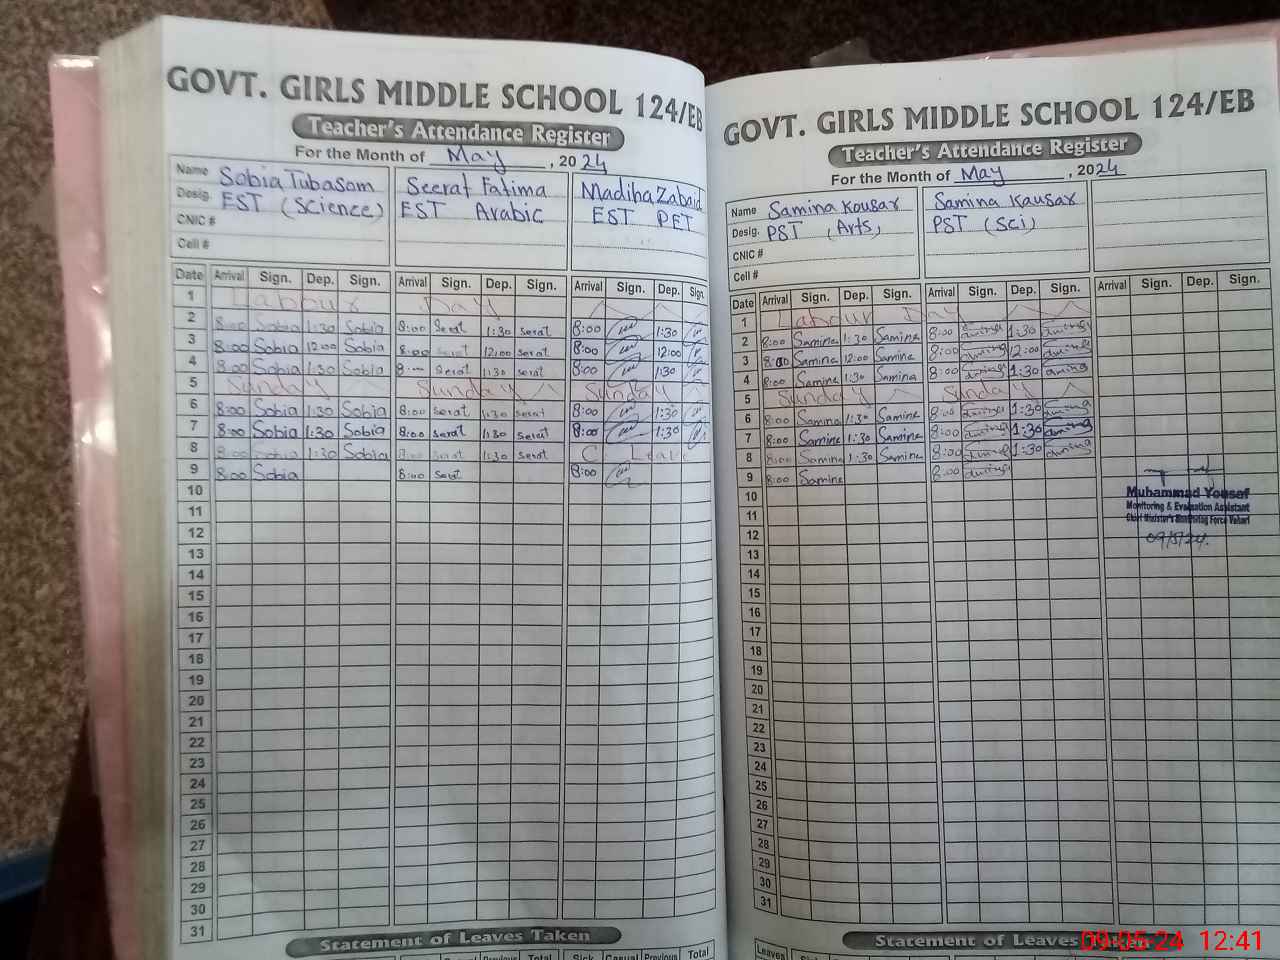 GOVT. GIRLS MIDDLE SCHOOL 124/EB
Teacher's Attendance Register
For the Month of May, 2024
Name Sobia Tubasom Seerat Fatima Madiha Zabaid
Desig. EST (Science) EST Arabic EST PET
CNIC #
Cell #
Date Arrival Sign. Dep. Sign. Arrival Sign. Dep. Sign. Arrival Sign. Dep. Sign.
1 Labour Day
2 8:00 Sobia 1:30 Sobia 8:00 Serat 1:30 serat 8:00 1:30
3 8:00 Sobia 12:00 Sobia 8:00 12:00 serat 8:00 12:00
4 8:00 Sobia 1:30 Sobia 8 Serat 1:30 serat 8:00 1:30
5 Sunday Sunday Sunday
6 8:00 Sobia 1:30 Sobia 8:00 serat 1:30 serat 8:00 1:30
7 8:00 Sobia 1:30 Sobia 8:00 serat 1:30 serat 8:00 1:30
8 8:00 Sobia 1:30 Sobia 8:00 serat 1:30 serat C Leave
9 8:00 Sobia 8:00 serat 8:00
10
11
12
13
14
15
16
17
18
19
20
21
22
23
24
25
26
27
28
29
30
31
Statement of Leaves Taken
Previous Total Sick Casual Previous Total
GOVT. GIRLS MIDDLE SCHOOL 124/EB
Teacher's Attendance Register
For the Month of May, 2024
Name Samina Kousar Samina Kausar
Desig. PST (Arts) PST (Sci)
CNIC #
Cell #
Date Arrival Sign. Dep. Sign. Arrival Sign. Dep. Sign. Arrival Sign. Dep. Sign.
1 Labour Day
2 8:00 Samina 1:30 Samina 8:00 1:30
3 8:00 Samina 12:00 Samina 8:00 12:00
4 8:00 Samina 1:30 Samina 8:00 1:30
5 Sunday Sunday
6 8:00 Samina 1:30 Samina 8:00 1:30
7 8:00 Samina 1:30 Samina 8:00 1:30
8 8:00 Samina 1:30 Samina 8:00 1:30
9 8:00 Samina 8:00
10
11
12
13
14
15
16
17
18
19
20
21
22
23
24
25
26
27
28
29
30
31
Muhammad Yousaf
Monitoring & Evaluation Assistant
Chief Minister's Monitoring Force Vehari
09/5/24.
Statement of Leaves
Leaves
09-05-24 12:41